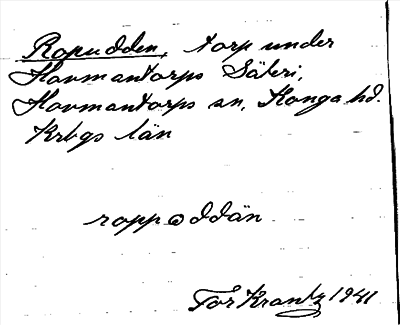 Ropudden, torp under
Hovmantorps Säteri,
Hovmantorps sn, Konga hd.
Krbgs län
roppəddän
Tor Krantz 1941